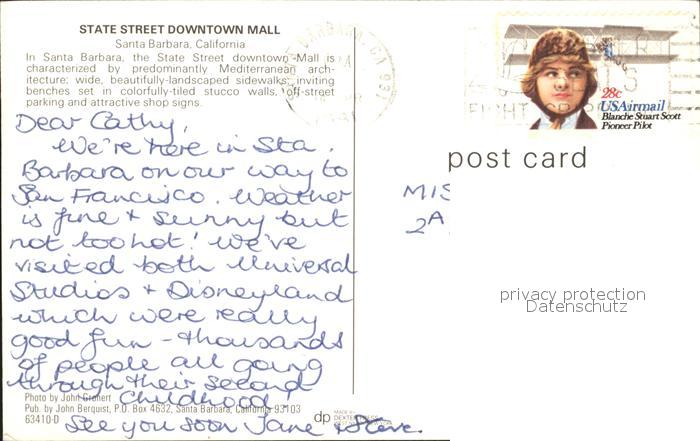 STATE STREET DOWNTOWN MALL
Santa Barbara, California
In Santa Barbara, the State Street downtown Mall is
characterized by predominantly Mediterranean arch-
itecture; wide, beautifully-landscaped sidewalks; inviting
benches set in colorfully-tiled stucco walls, off-street
parking and attractive shop signs.
Dear Cathy,
We're here in Sta.
Barbara on our way to
San Francisco. Weather
is fine + sunny but
not too hot! We've
visited both Universal
Studios + Disneyland
which were really
good fun - thousands
of people all going
through their second
Childhood!
See you soon Jane + Steve.
Photo by John
Pub. by John Berquist, P.O. Box 4632, Santa Barbara, California 93103
63410-D
dp
MADE BY
DEXTER PRESS
BARBARA, CA 931
28c
USAirmail
Blanche Stuart Scott
Pioneer Pilot
post card
MIS
2A
privacy protection
Datenschutz